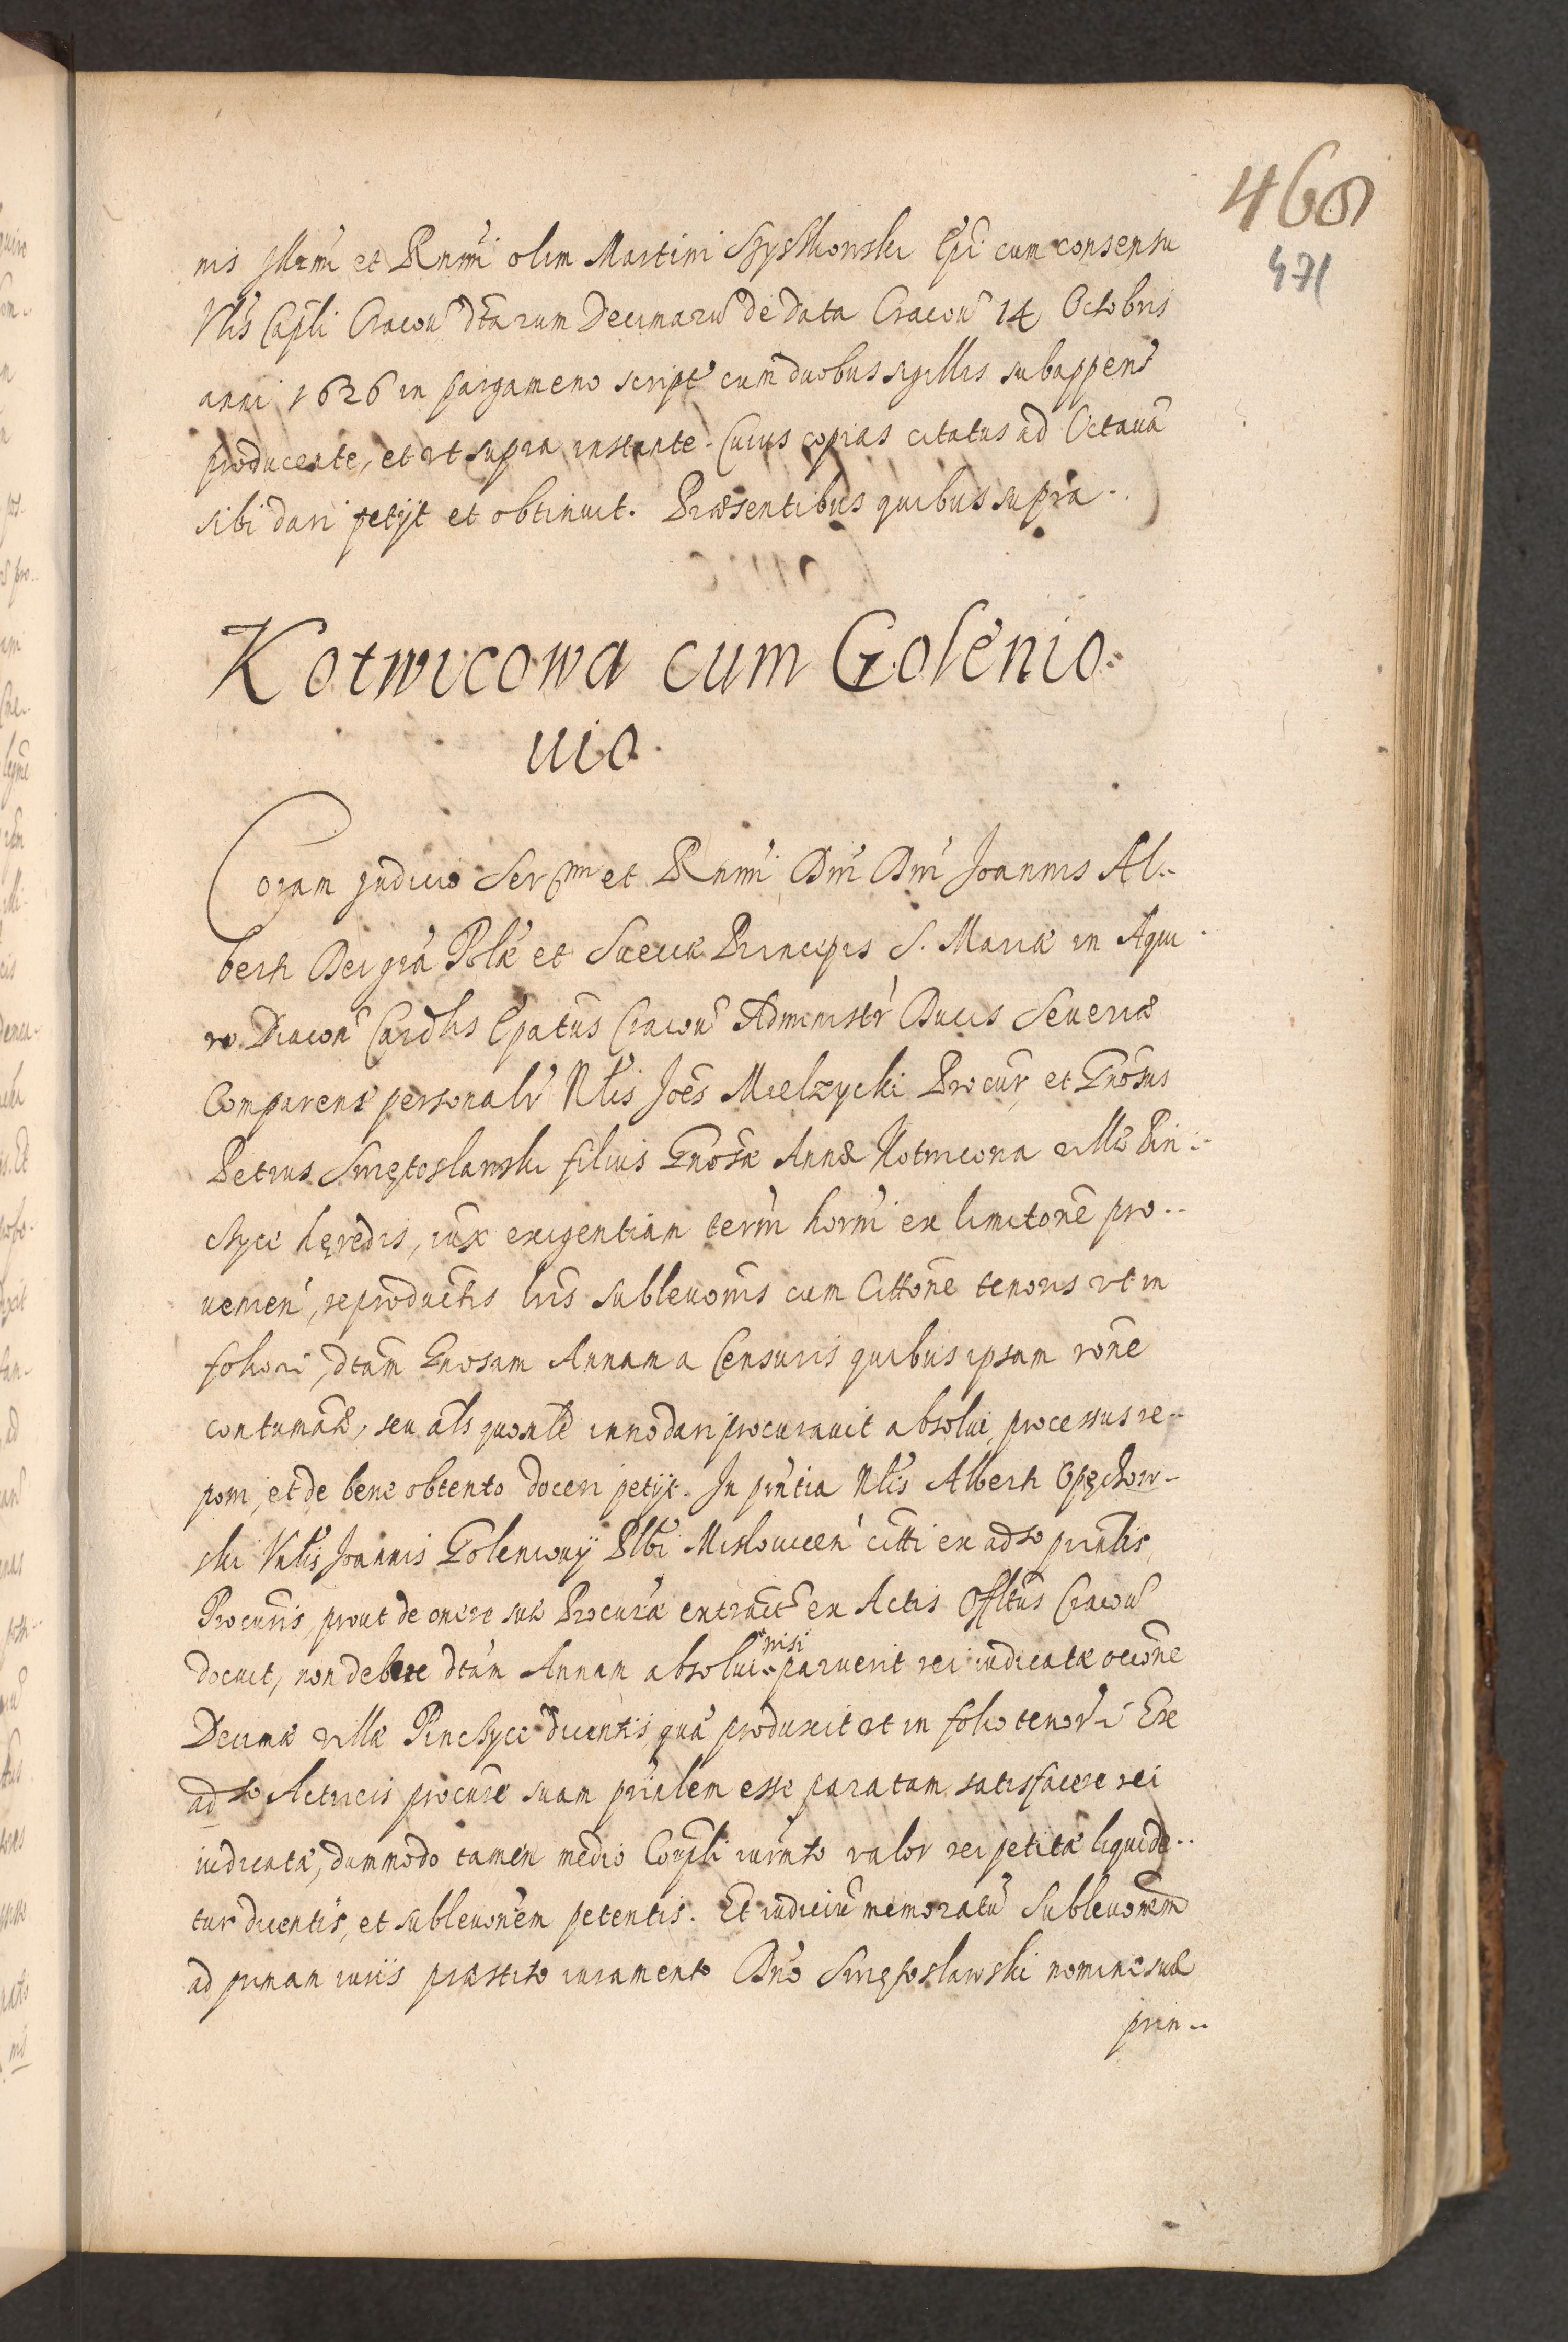 468
471
nis Illrmi et Rnmi olim Martini Szyszkowski Epi cum consensu
Vlis Capli Cracou dtarum Decimaru de data Cracou 14 Octobris
anni 1626 in pargameno script cum duobus sigillis subappens
producente, et ut supra instante. Cuius copias citatus ad Octaua
sibi dari petijt et obtinuit. Præsentibus quibus supra.
Kotwicowa cum Golenio
uio.
Coram Judicio Serssmi et Rnmi Dni Dni Joannis Al
berti Dei gra Polæ et Sueciæ Principis S. Mariæ in Aqui
ro Diacon Cardlis Epatus Cracou Administr Ducis Seueriæ
Comparens personalr Nlis Joes Mielzycki Procur et Gnosus
Petrus Swiętosławski filius Gnosæ Annæ Kotwicowa villæ Pin
czyce hęredis, iux exigentiam termi horni ex limitone pro
uenien, reproductis lris subleuonis cum Cittone tenoris ut in
folio ri, dtam Gnosam Annam a Censuris quibus ipsam rone
contumaæ, seu als quomlt innodari procurauit absolui, processus re
poni, et de bene obtento doceri petijt. In pntia Nlis Alberti Opęchow
ski Vnlis Joannis Goleniowij Plbi Mislouicen citti ex adso prinlis
Procuris, prout de onere suæ Procuræ extract ex Actis Offltus Cracou
docuit, non debere dtam Annam absolui nisi paruerit rei iudicatæ occone
Decimæ villæ Pinczyce dicentis, qua produxit ut in folio tenor ri Ex
adso Actricis procure suam prinlem esse paratam satisfacere rei
iudicatæ, dummodo tamen medio Corpli iurmto valor rei petitæ liquide
tur dicentis, et subleuonem petentis. Et iudiciu memoratu Subleuonem
ad primam iuris præstito iuramento Dno Swiętosławski nomine suæ
prin